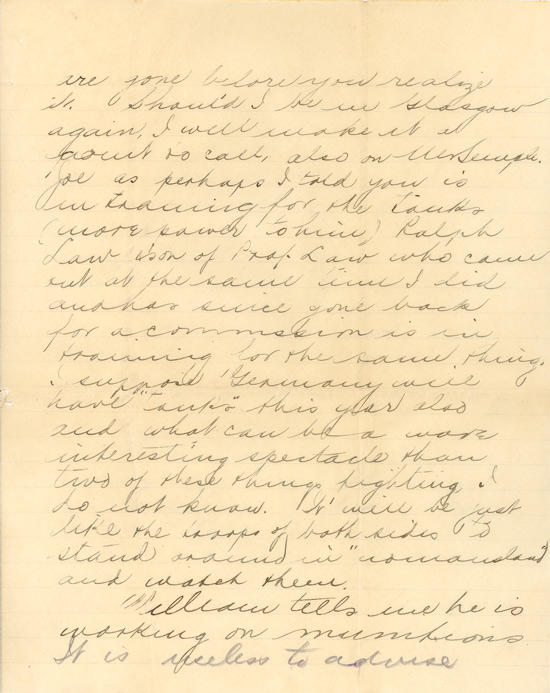 are gone before you realize
it. Should I be in Glasgow
again, I will make it a
point to call, also on Mr Semple.
Joe as perhaps I told you is
in training for the tanks
(more power to him) Ralph
Law son of Prof. Law who came
out at the same time I did
and has since gone back
for a commission is in
training for the same thing.
I suppose Germany will
have "tanks" this year also
and what can be a more
interesting spectacle than
two of these things fighting I
do not know. It will be just
like the troops of both sides to
stand around in "nomansland"
and watch them.
William tells me he is
working on munitions
It is useless to advise